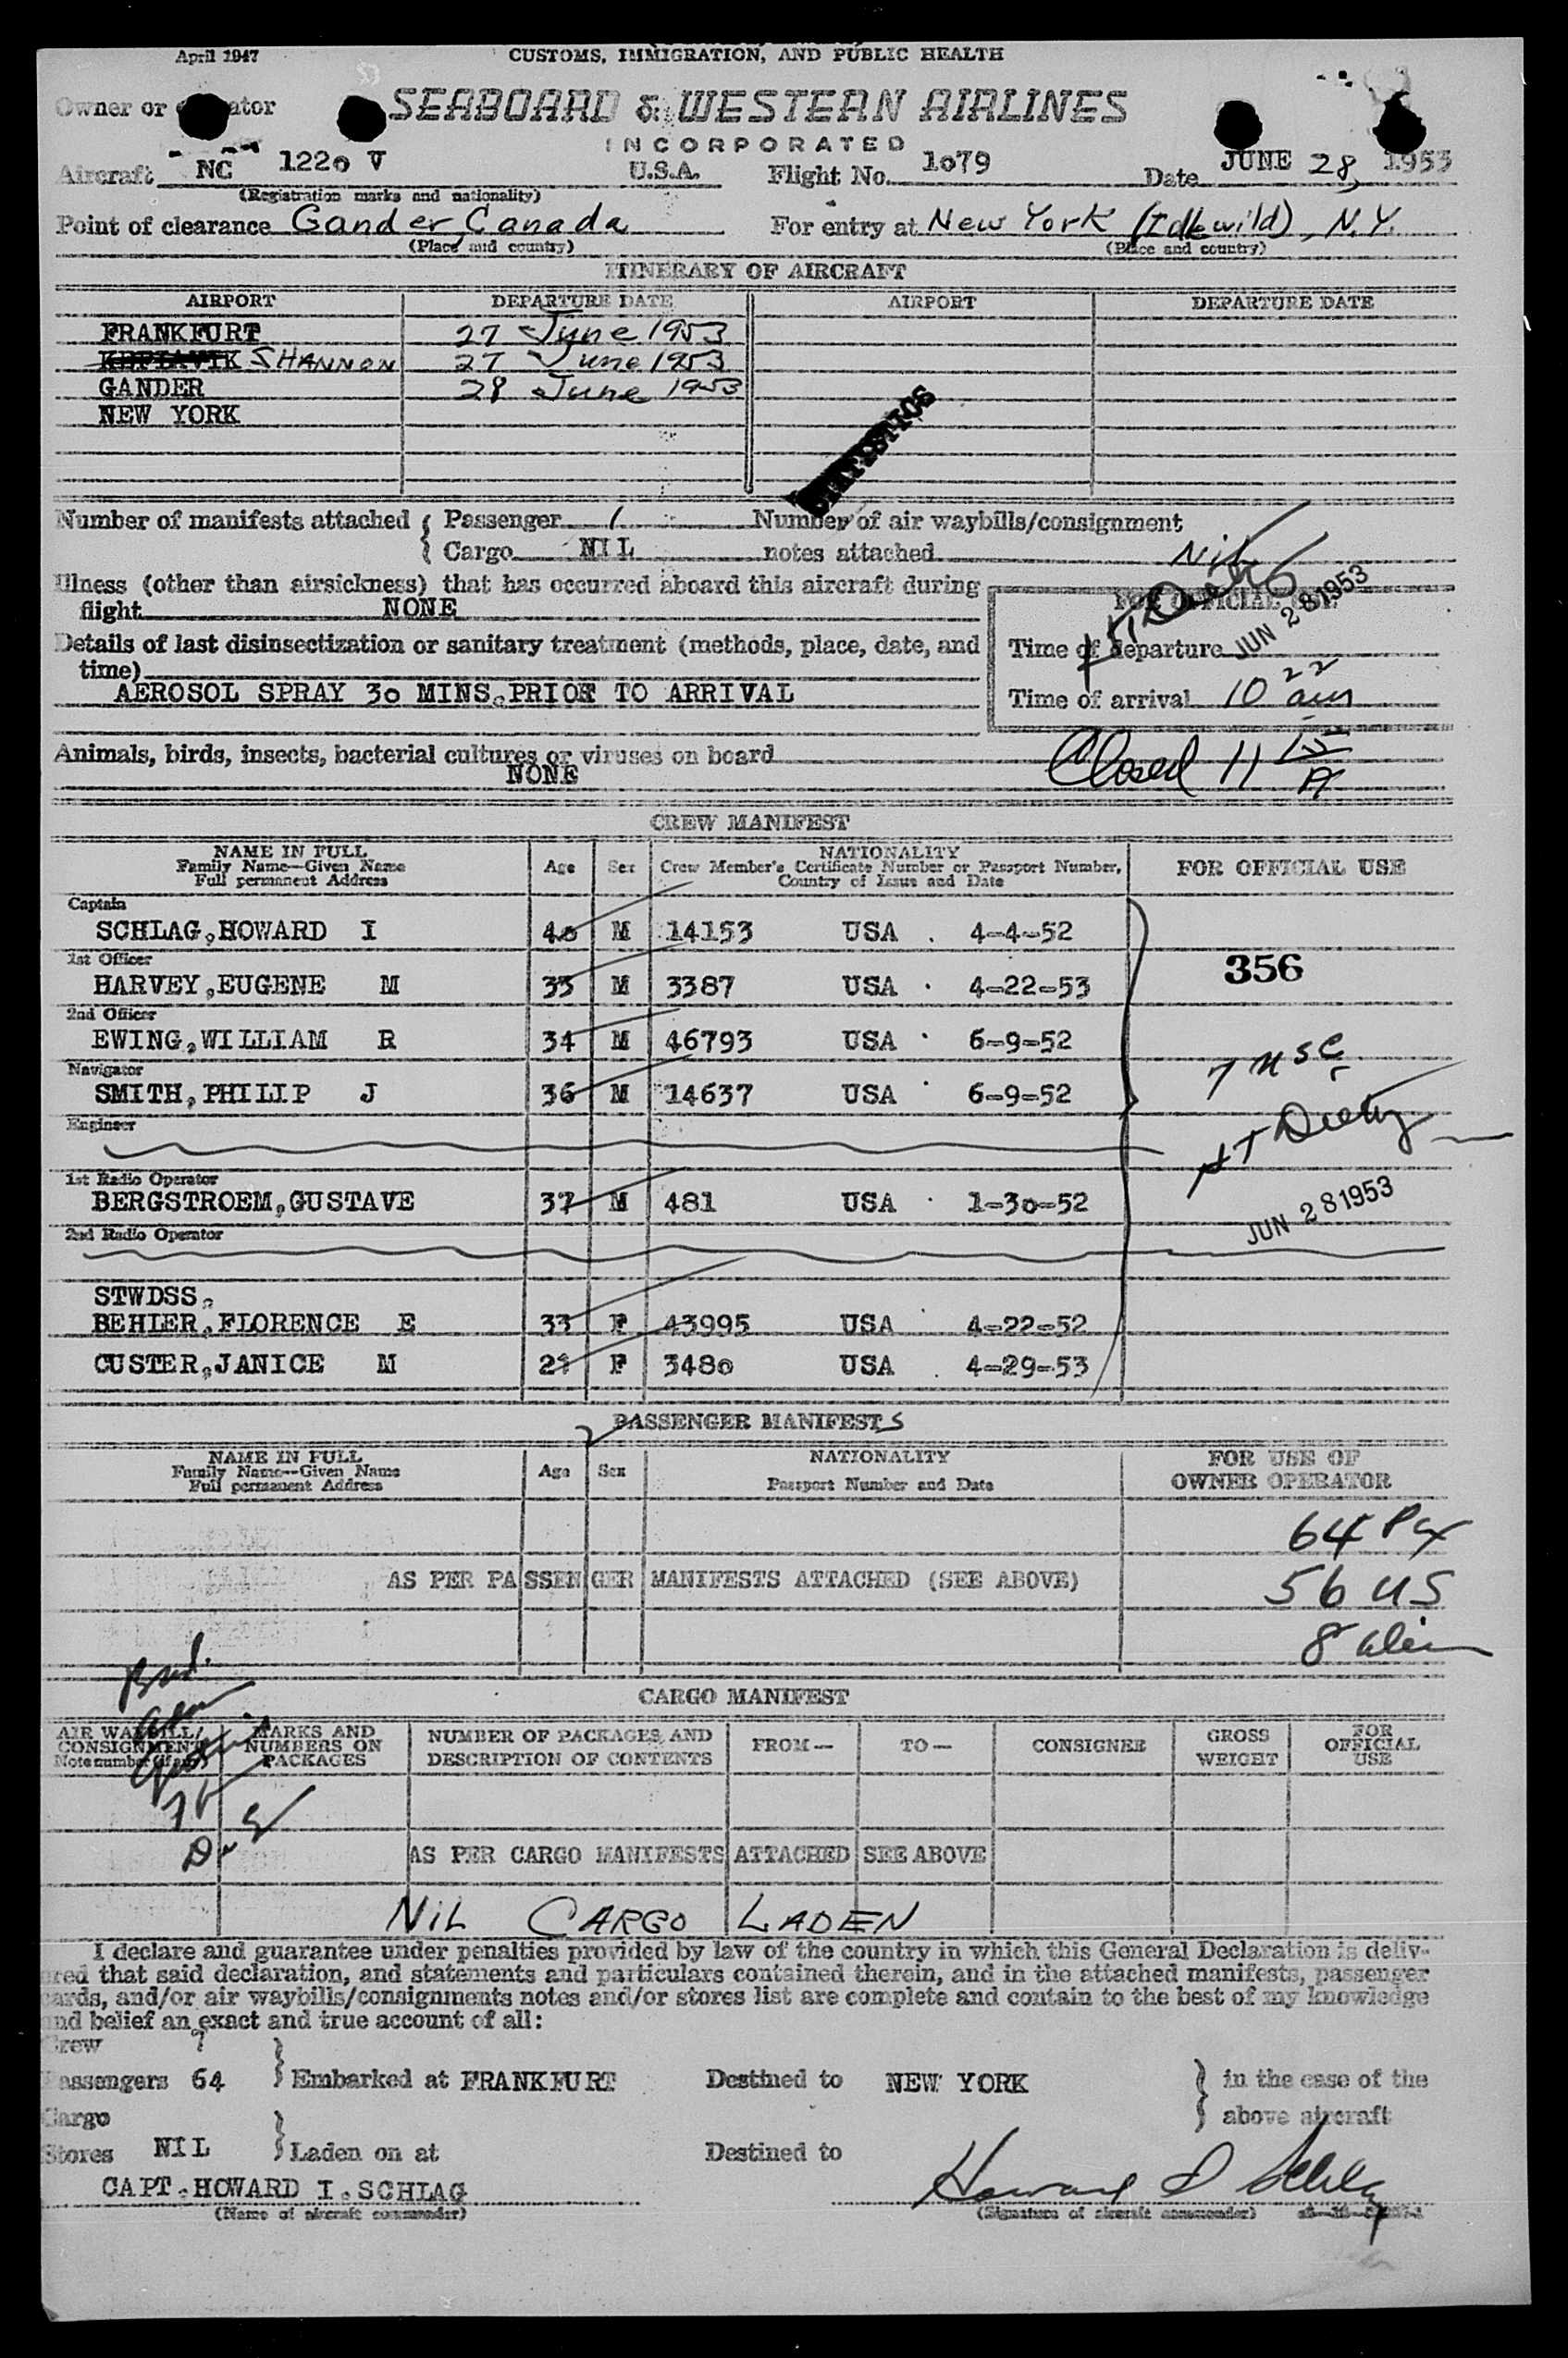 April 1947 CUSTOMS, IMMIGRATION, AND PUBLIC HEALTH
Owner or
SEABOARD & WESTERN AIRLINES
INCORPORATED
Aircraft NC 122o V U.S.A. Flight No. 1o79 Date JUNE 28, 1953
(Registration marks and nationality)
Point of clearance Gander, Canada For entry at New York (Idlewild), N.Y.
(Place and country) (Place and country)
ITINERARY OF AIRCRAFT
AIRPORT DEPARTURE DATE AIRPORT DEPARTURE DATE
FRANKFURT 27 June 1953
KEFLAVIK SHANNON 27 June 1953
GANDER 28 June 1953
NEW YORK
STATISTICS
Number of manifests attached { Passenger 1 Number of air waybills/consignment
Cargo NIL notes attached Nil
Illness (other than airsickness) that has occurred aboard this aircraft during
flight NONE
FOR OFFICIAL USE
Details of last disinsectization or sanitary treatment (methods, place, date, and
time)
AEROSOL SPRAY 3o MINS.PRIOR TO ARRIVAL
Time of departure JUN 28 1953
Time of arrival 10 22 am
Animals, birds, insects, bacterial cultures or viruses on board
NONE
Closed 11 15 A
CREW MANIFEST
NAME IN FULL
Family Name—Given Name
Full permanent Address
Age Sex
NATIONALITY
Crew Member's Certificate Number or Passport Number,
Country of Issue and Date
FOR OFFICIAL USE
Captain
SCHLAG,HOWARD I 4o M 14153 USA 4-4-52
1st Officer
HARVEY,EUGENE M 33 M 3387 USA 4-22-53
356
2nd Officer
EWING,WILLIAM R 34 M 46793 USA 6-9-52
Navigator
SMITH,PHILIP J 36 M 14637 USA 6-9-52
7 USC
Engineer
1st Radio Operator
BERGSTROEM,GUSTAVE 37 M 481 USA 1-3o-52
JUN 28 1953
2nd Radio Operator
STWDSS.
BEHLER,FLORENCE E 33 F 43995 USA 4-22-52
CUSTER,JANICE M F 348o USA 4-29-53
2 PASSENGER MANIFESTS
NAME IN FULL
Family Name—Given Name
Full permanent Address
Age Sex
NATIONALITY
Passport Number and Date
FOR USE OF
OWNER OPERATOR
64 Px
AS PER PASSENGER MANIFESTS ATTACHED (SEE ABOVE)
56 US
8 alien
CARGO MANIFEST
AIR WAYBILL/
CONSIGNMENT
Note number (if any)
MARKS AND
NUMBERS ON
PACKAGES
NUMBER OF PACKAGES AND
DESCRIPTION OF CONTENTS
FROM— TO— CONSIGNEE
GROSS
WEIGHT
FOR
OFFICIAL
USE
AS PER CARGO MANIFESTS ATTACHED SEE ABOVE
NIL CARGO LADEN
I declare and guarantee under penalties provided by law of the country in which this General Declaration is deliv-
ered that said declaration, and statements and particulars contained therein, and in the attached manifests, passenger
cards, and/or air waybills/consignments notes and/or stores list are complete and contain to the best of my knowledge
and belief an exact and true account of all:
Crew 7
Passengers 64 } Embarked at FRANKFURT Destined to NEW YORK } in the case of the
above aircraft
Cargo
Stores NIL } Laden on at Destined to
CAPT.HOWARD I.SCHLAG Howard I Schlag
(Name of aircraft commander) (Signature of aircraft commander)